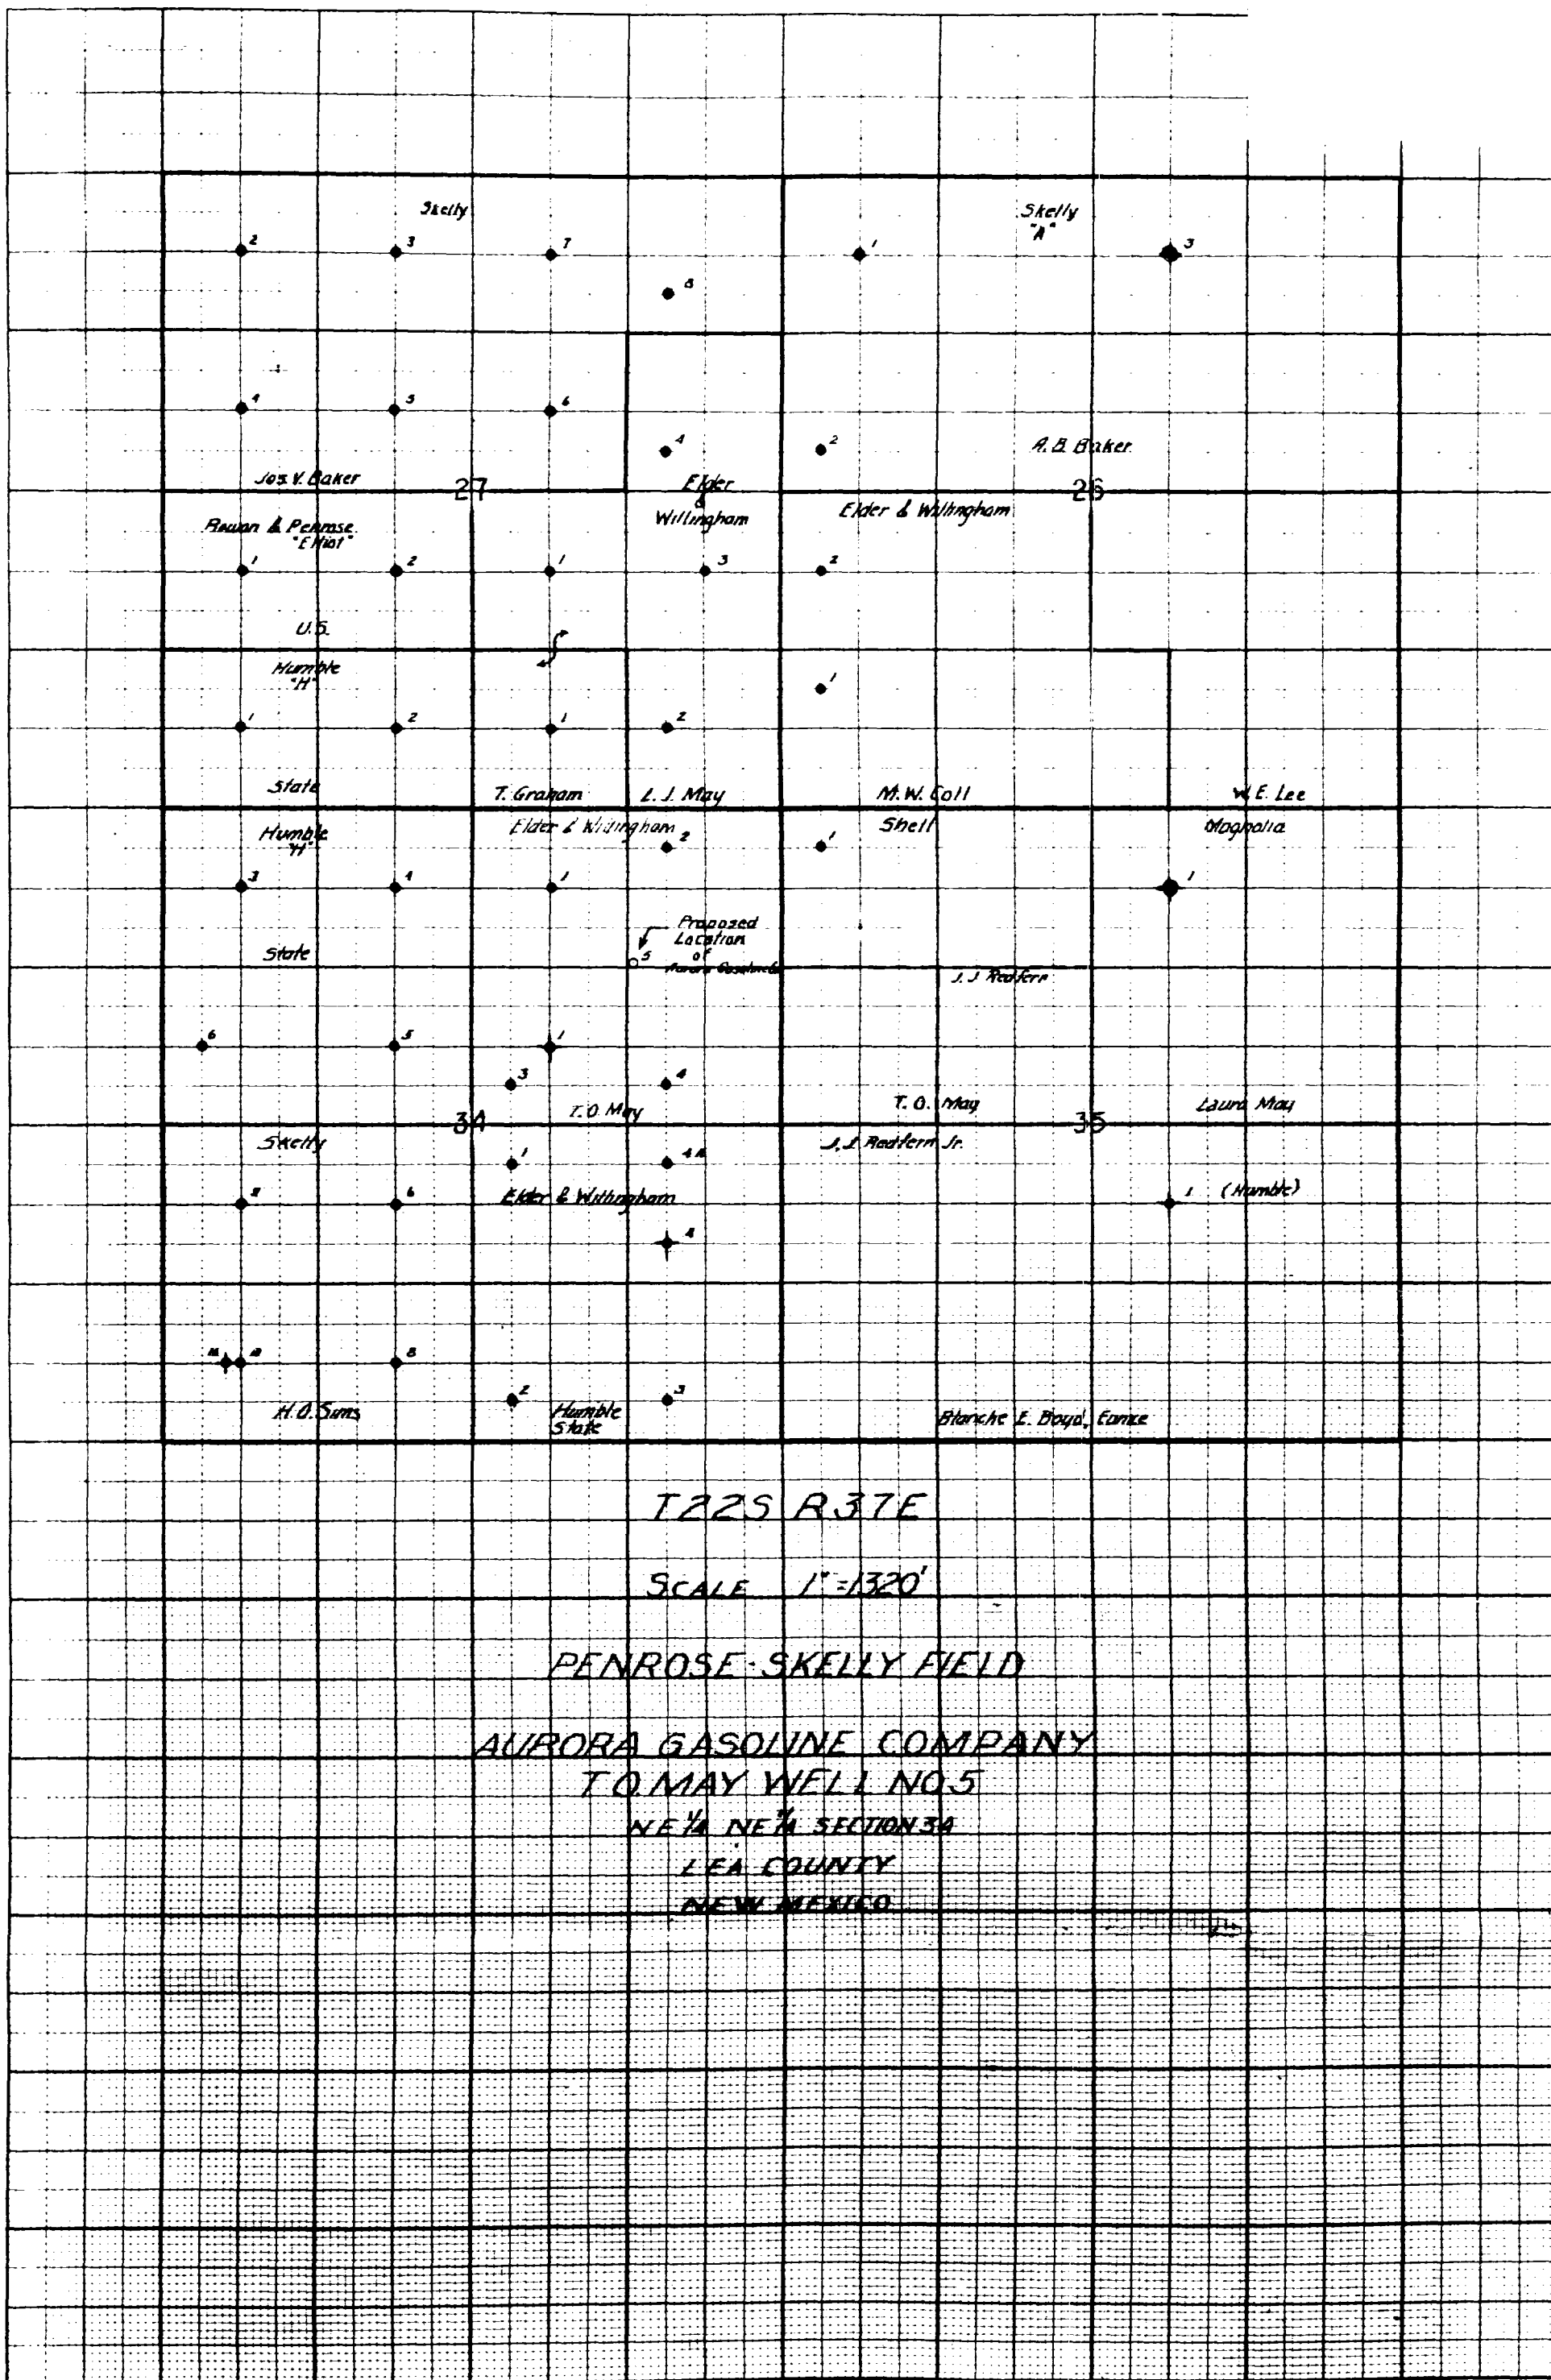 Skelly
Skelly
"A"
2
3
7
1
3
8
4
5
6
4
2
A. B. Baker
Jos. V. Baker
27
Elder
&
Willingham
26
Elder & Willingham
Rowan & Penrose
"Elliot"
1
2
1
3
2
U.S.
Humble
"H"
1
1
2
1
2
State
T. Graham
L. J. May
M. W. Coll
W. E. Lee
Humble
"H"
Elder & Willingham
2
1
Shell
Magnolia
3
4
1
1
Proposed
Location
of
Aurora Gasoline Co
5
State
J. J. Redfern
6
5
1
3
4
T. O. May
T. O. May
Laura May
34
35
Skelly
J. J. Redfern Jr.
1
4A
6
Elder & Willingham
1
(Humble)
4
8
2
3
H. O. Sims
Humble
State
Blanche E. Boyd,
T22S R37E
SCALE 1"=1320'
PENROSE-SKELLY FIELD
AURORA GASOLINE COMPANY
T.O. MAY WELL NO.5
NE 1/4 NE 1/4 SECTION 34
LEA COUNTY
NEW MEXICO